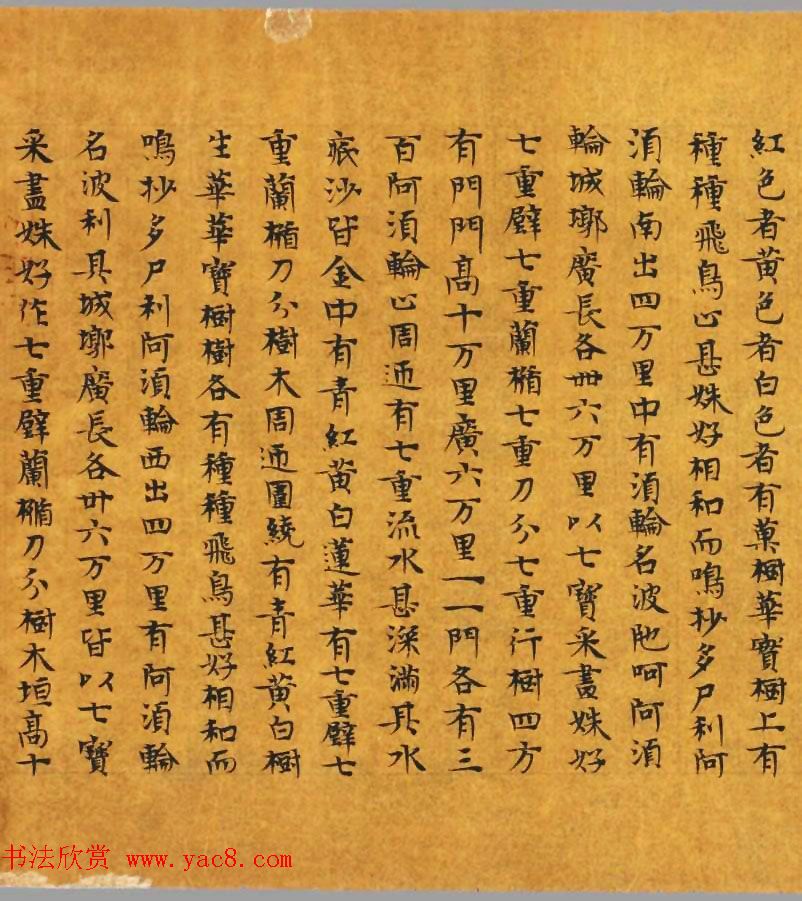 紅色者黃色者白色者有菓樹華寶樹上有
種種飛鳥止甚姝好相和而鳴抄多尸利阿
湏輪南出四万里中有湏輪名波陁呵阿湏
輪城墎廣長各卅六万里以七寶采畫姝好
七重壁七重蘭楯七重刀分七重行樹四方
有門門高十万里廣六万里一一門各有三
百阿湏輪止周迊有七重流水甚深滿其水
底沙皆金中有青紅黃白蓮華有七重壁七
重蘭楯刀分樹木周迊圍繞有青紅黃白樹
生華華寶樹樹各有種種飛鳥甚好相和而
鳴抄多尸利阿湏輪西出四万里有阿湏輪
名波利具城墎廣長各卅六万里皆以七寶
采畫姝好作七重壁蘭楯刀分樹木垣高十
书法欣赏 www.yac8.com